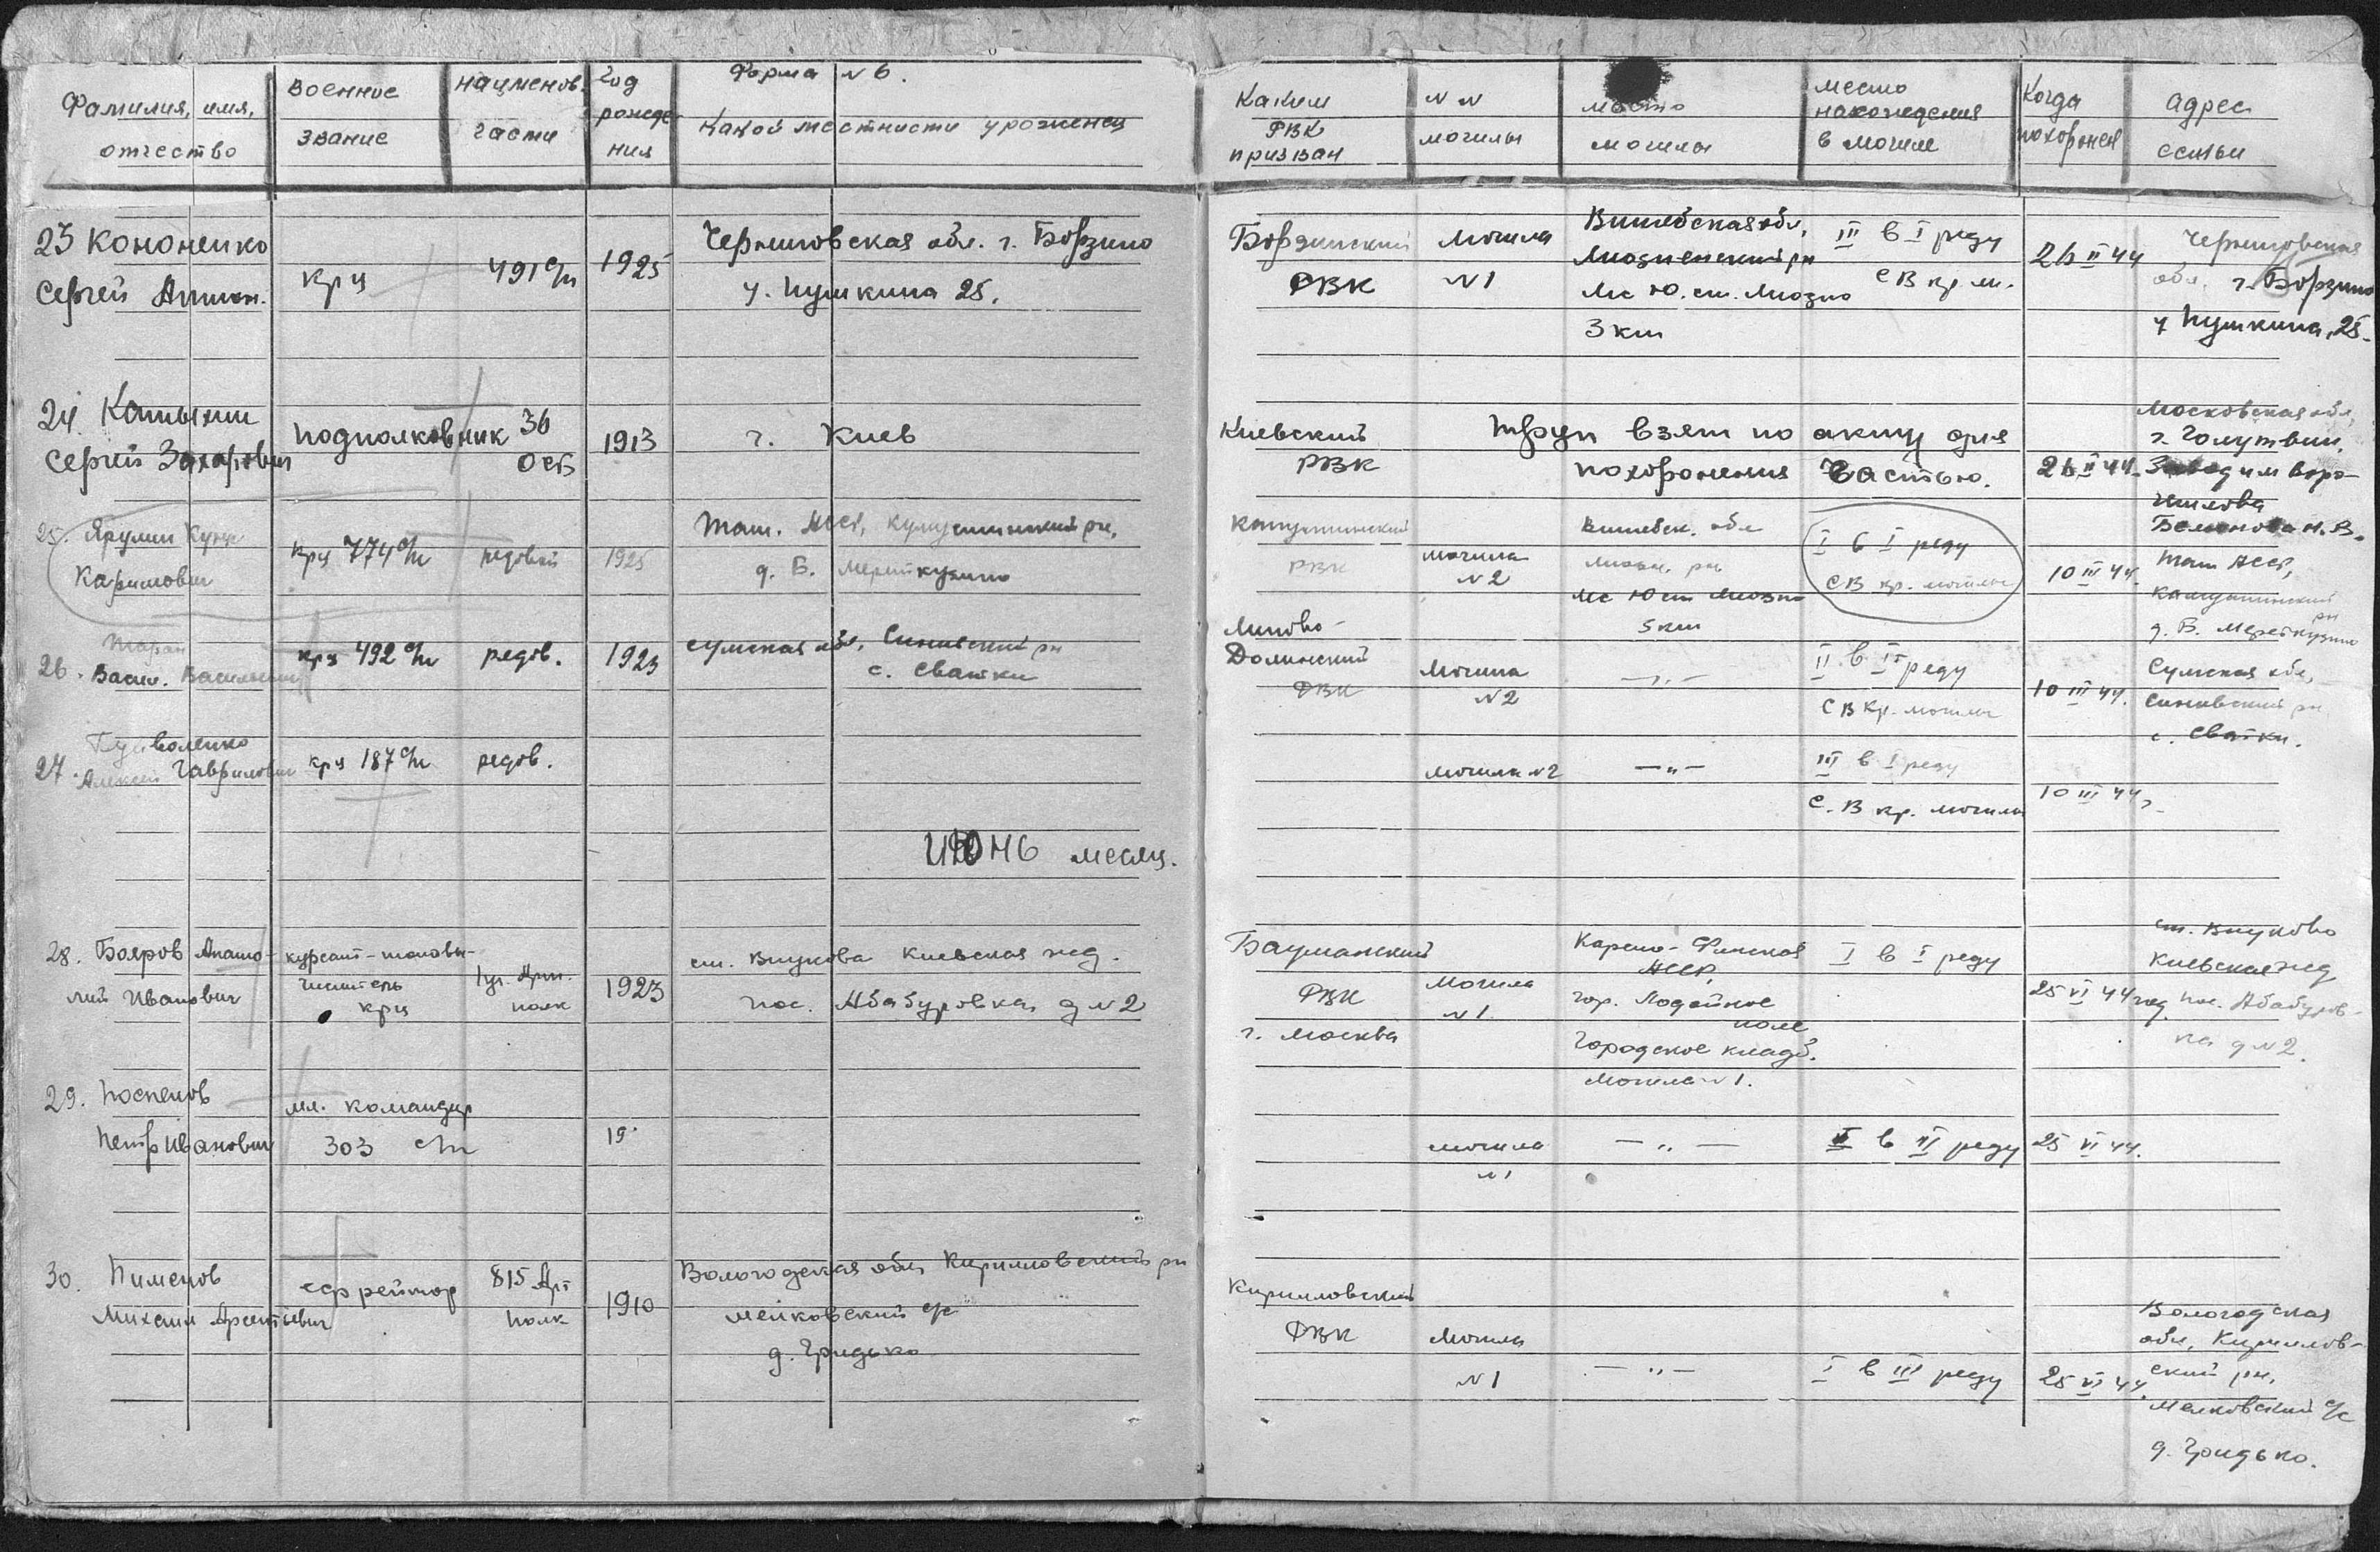 Форма N 6.
Фамилия, имя, отчество
Военное звание
наименов. части
Год рождения
Какой местности уроженец
Каким РВК призван
N N могилы
место могилы
место нахождения в могиле
Когда похоронен
адрес семьи
23 Кононенко
Сергей Антон.
крц
491 с/п
1925
Черниговская обл. г. Борзино
у. Пушкина 25.
Борзинский
РВК
Могила
N1
Витебская обл,
Лиозненский рн
Мс Ю. ст. Лиозно
3 км
III в I реду
СВ кр. м.
26 II 44
Черниговская
обл. г. Борзино
у Пушкина, 25.
24. Катыхин
Сергей Захарович
подполковник
36
ОСБ
1913
г. Киев
Киевский
РВК
Труп взят по акту для
похоронения частью.
26 II 44.
Московская обл,
г. Голутвин.
Завод им Воро-
шилова
Н.В.
25. Ярулин
Каримович
крц 774 с/п
редовой
1925
Тат. АССР, рн,
д. Б.
РВК
могила
N2
Витебск. обл
Лиозн. рн
Мс Ю ст Лиозно
5 км
I в I реду
СВ кр. могилы
10 III 44.
Тат АССР,
рн
д. Б.
26. Таран
Васил. Васильевич
крц 492 с/п
редов.
1923
Сумская обл, Синивский рн
с. Сватки
Липово-
Долинский
РВК
Могила
N2
— „ —
II в I реду
СВ кр. могилы
10 III 44.
Сумская обл,
Синивский рн
с. Сватки.
27. Буйволенко
Алексей Гаврилович
крц 187 с/п
редов.
могила N2
— „ —
III в I реду
С.В кр. могилы
10 III 44 г.
ИЮНЬ месяц.
28. Бояров Анато-
лий Иванович
курсант-
крц
Арт.
полк
1923
ст. Внукова Киевская жд.
пос. Абабуровка, д N2
Бауманский
РВК
г. Москва
Могила
N1
Карело-Финская
АССР,
гор. Лодейное
поле
Городское кладб.
Могила N1.
I в I реду
25 VI 44 год
ст. Внуково
Киевская жд
пос. Абабуров-
ка д N2.
29. Поспелов
Петр Иванович
мл. командир
303 с/п
19
могила
N1
— „ —
II в II реду
25 VI 44.
30. Пименов
Михаил
ефрейтор
815 Арт
полк
1910
Вологодская обл, Кирилловский рн
с/с
д. Гридько
Кирилловский
РВК
Могила
N1
— „ —
I в III реду
25 VI 44.
Вологодская
обл, Кириллов-
ский рн,
с/с
д. Гридько.